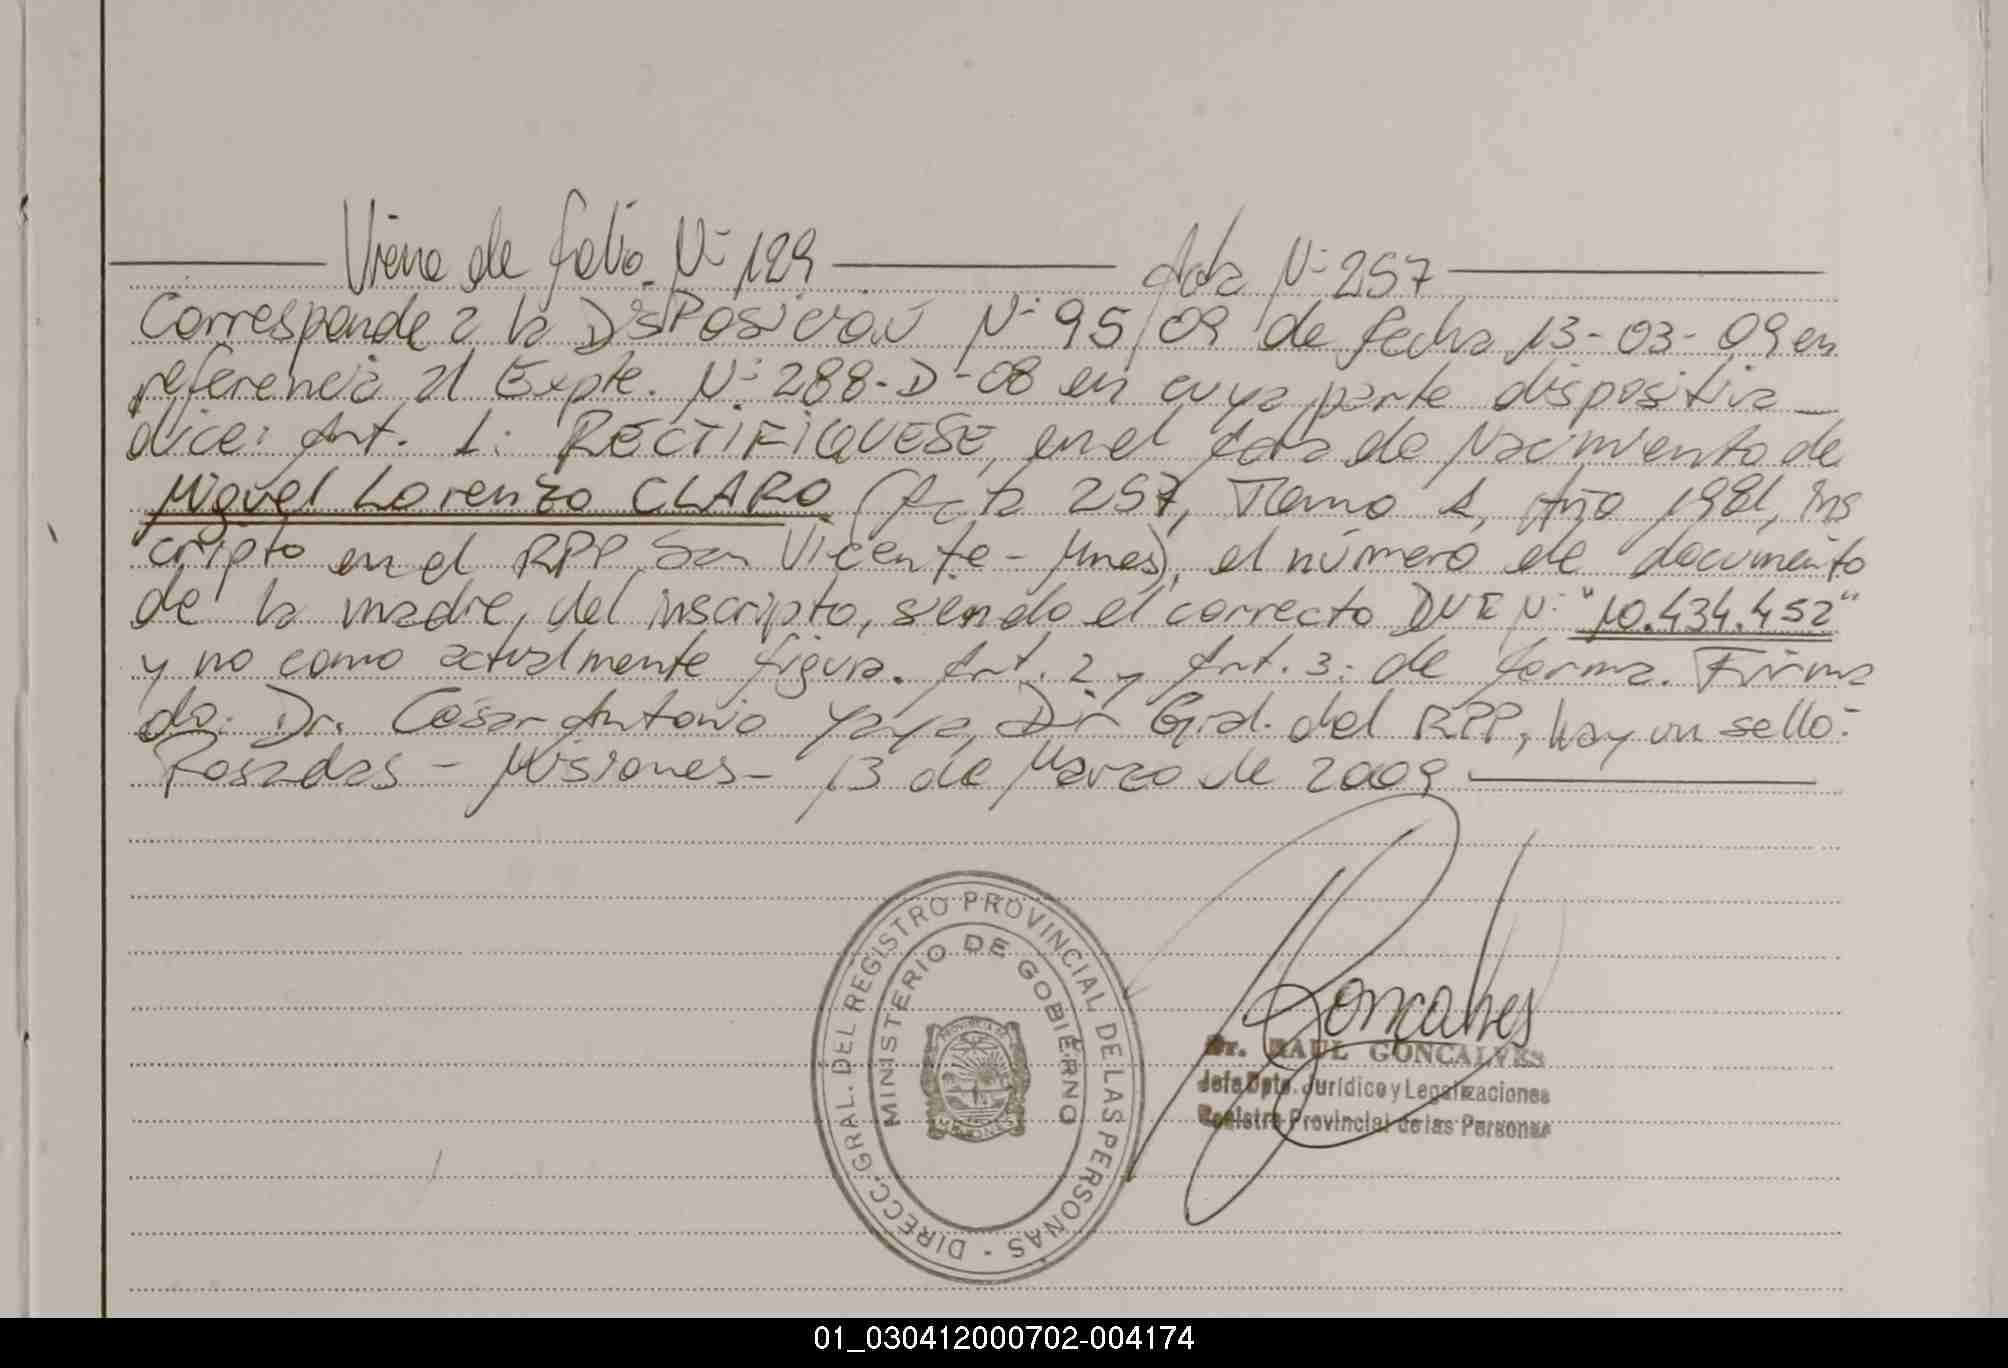 Viene de folio N° 129 Acta N° 257
Corresponde a la DISPOSICION N° 95/09 de fecha 13-03-09 en
referencia al Expte. N° 288-D-08 en cuya parte dispositiva
dice: Art. 1: RECTIFIQUESE, en el Acta de Nacimiento de
Miguel Lorenzo CLARO (Acta 257, Tomo 1, Año 1981, ins
cripto en el RPP San Vicente - Mnes), el número de documento
de la madre, del inscripto, siendo el correcto DNI N° "10.434.452"
y no como actualmente figura. Art. 2 y Art. 3: de forma. Firma
do: Dr. César Antonio Yaya, Dir Gral. del RPP, hay un sello.-
Posadas - Misiones - 13 de Marzo de 2009
DIRECC. GRAL. DEL REGISTRO PROVINCIAL DE LAS PERSONAS
MINISTERIO DE GOBIERNO
PROVINCIA DE
MISIONES
Goncalves
Dr. RAUL GONCALVES
Jefe Dpto. Jurídico y Legalizaciones
Registro Provincial de las Personas
01_030412000702-004174